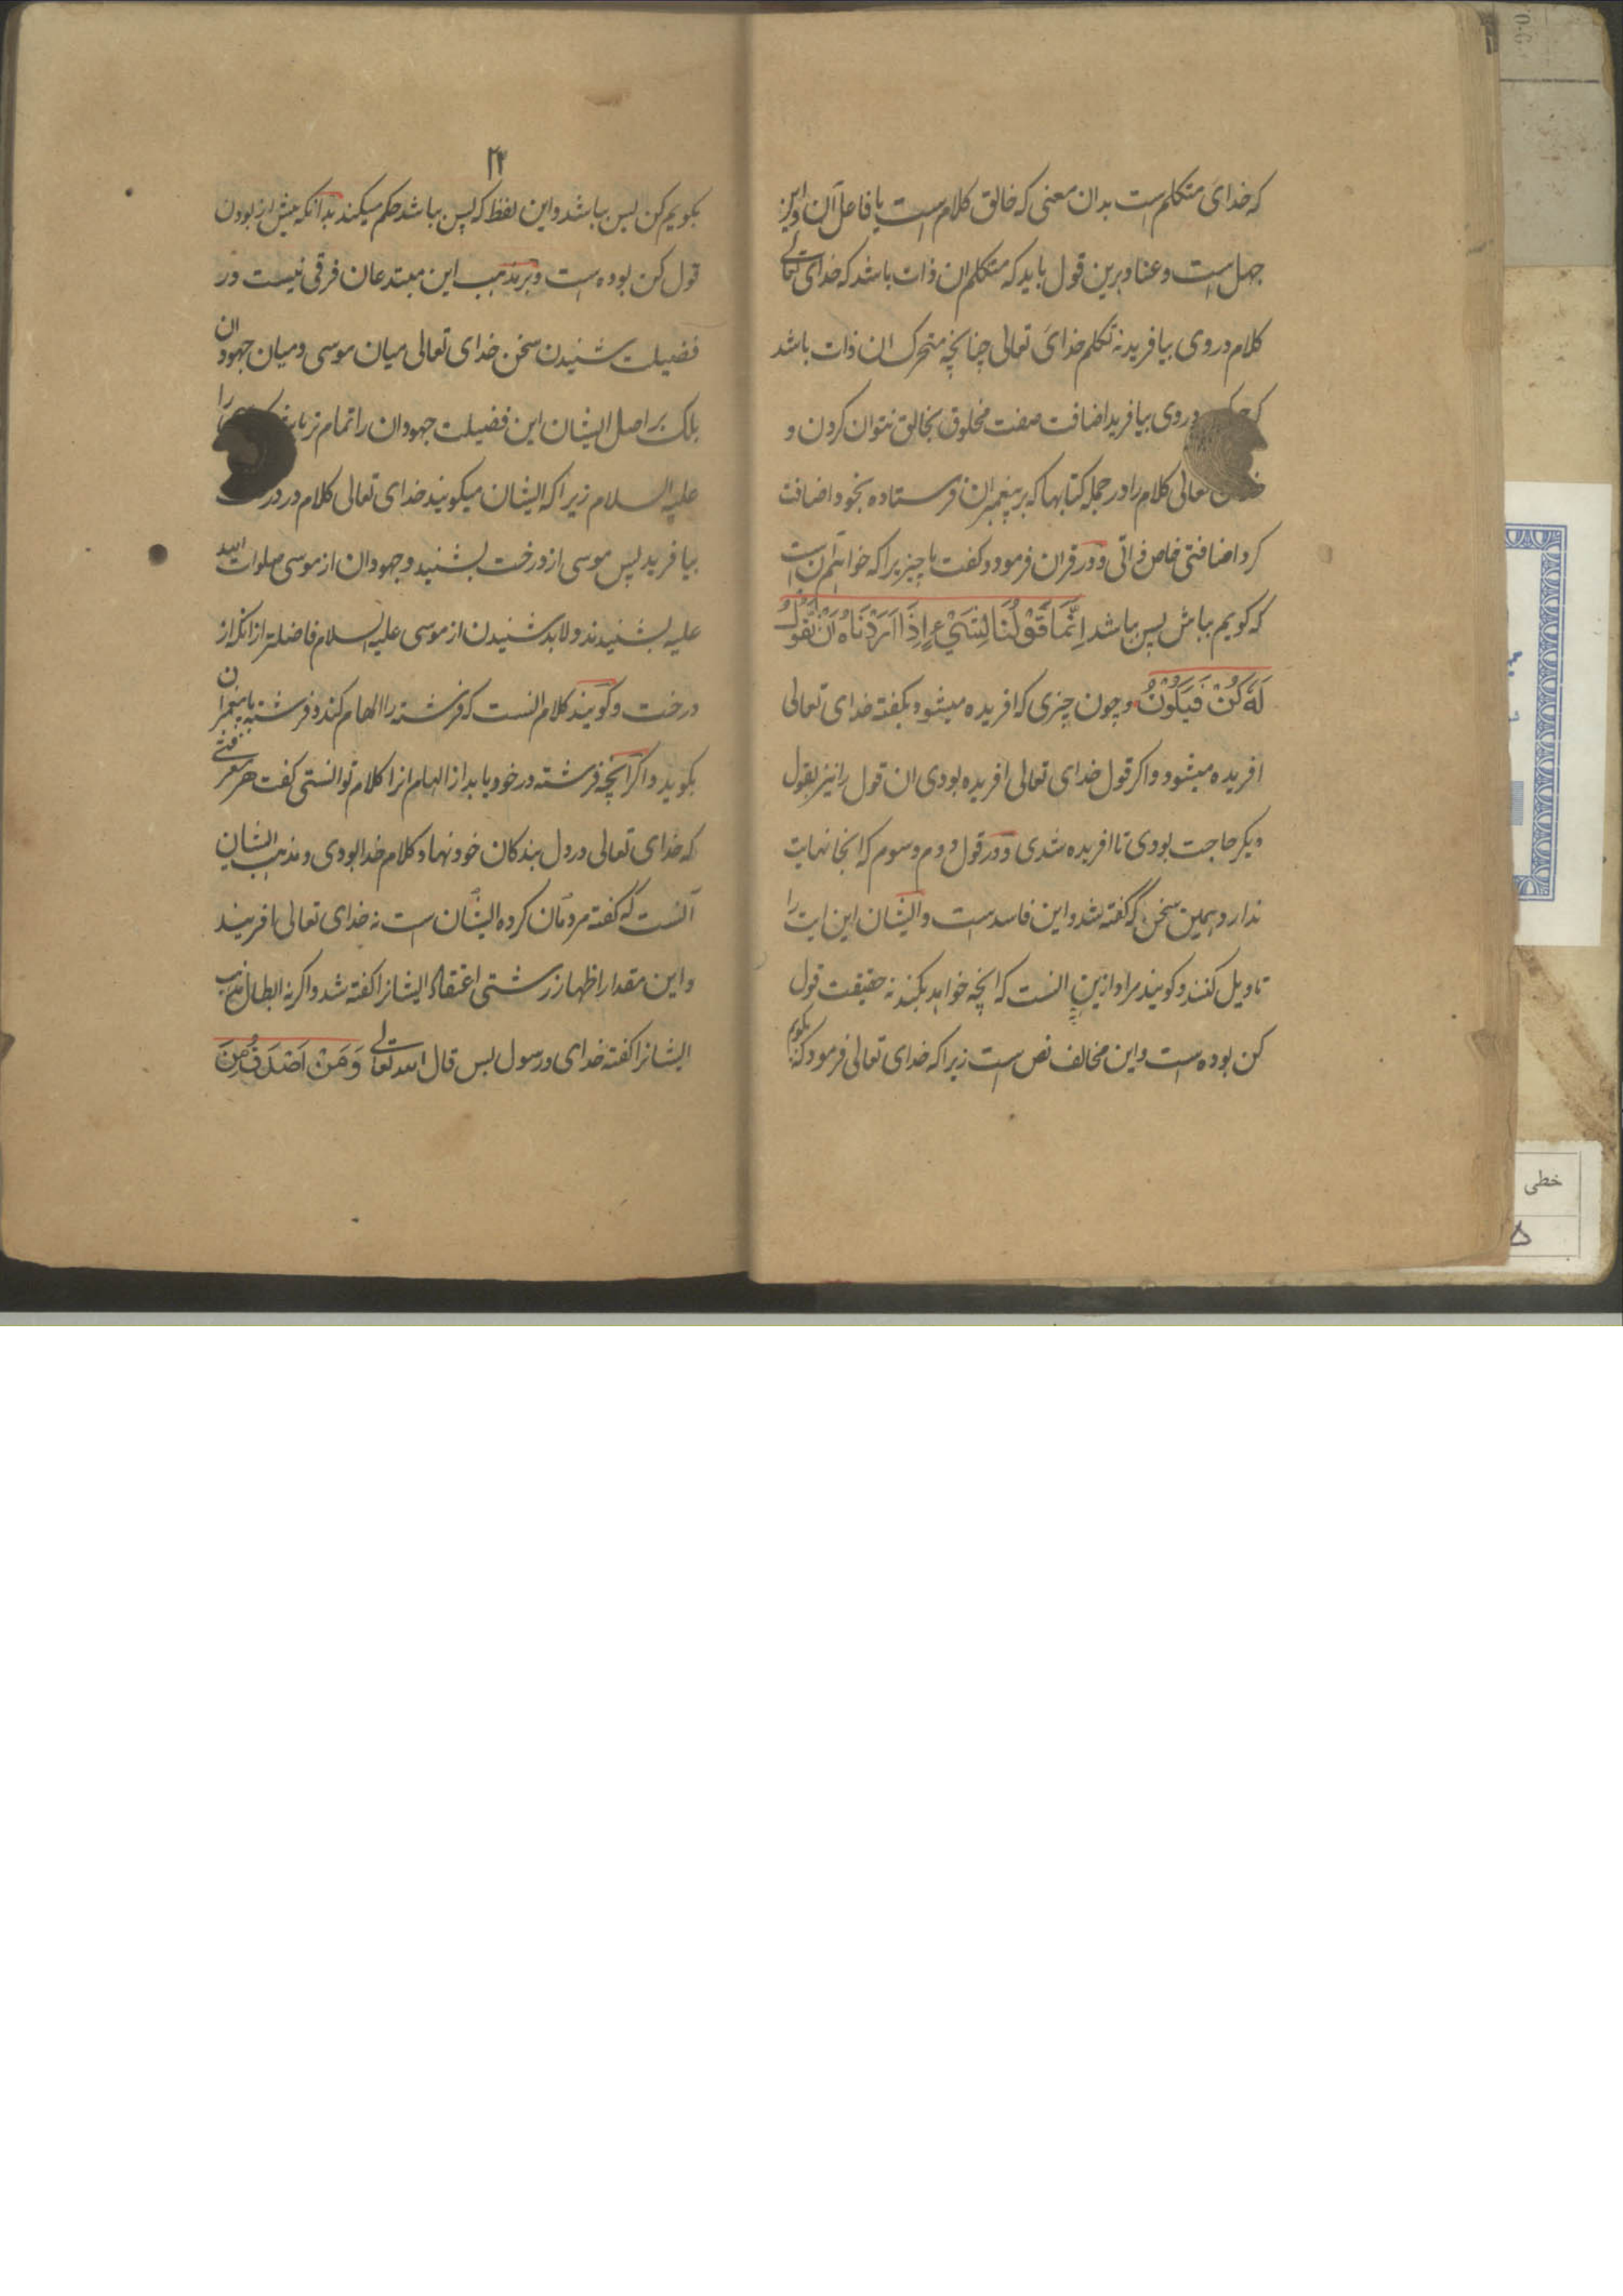 که خدای متکلم است بدان معنی که خالق کلام است یا فاعل آن و این
جهل است و عناد و برین قول باید که متکلم ان ذات باشد که خدای تعالی
کلام در وی بیافرید نه تکلم خدای تعالی چنانچه متحرک ان ذات باشد
که در وی بیافرید اضافت صفت مخلوق بخالق نتوان کردن و
تعالی کلام را در جمله کتابها که بر پیغمبران فرستاده بخود اضافت
کرد اضافتی خاص ذاتی و در قران فرمود و کفت ما چیزیرا که خواهیم آن است
که کویم بباش پس بباشد اِنَّمَا قَوْلُنَا لِشَيْءٍ اِذَا اَرَدْنَاهُ اَنْ نَقُولَ
لَهُ كُنْ فَيَكُونُ و چون چیزی که افریده میشود بکفته خدای تعالی
افریده میشود و اکر قول خدای تعالی افریده بودی ان قول را نیز بقول
دیکر حاجت بودی تا افریده شدی و در قول دوم و سوم که انجا نهایت
ندارد همین سخن که گفته شد و این فاسد است و ایشان این ایت را
تاویل کنند و کویند مراد ازین انست که انچه خواهد بکند نه حقیقت قول
کن بوده است و این مخالف نص است زیرا که خدای تعالی فرمود که بکویم
۲۴
بکویم کن پس بباشد و این لفظ که پس بباشد حکم میکند بدانکه پیش از بودن
قول کن بوده است و بر مذهب این مبتدعان فرقی نیست در
فضیلت شنیدن سخن خدای تعالی میان موسی و میان جهودان
بلک بر اصل ایشان این فضیلت جهودان را تمام تر را
علیه السلام زیرا که ایشان میکویند خدای تعالی کلام در درخت
بیافرید پس موسی از درخت بشنید و جهودان از موسی صلوات الله
علیه بشنیدند و لابد شنیدن از موسی علیه السلام فاضلتر از انکه از
درخت و کویند کلام انست که فرشته را الهام کند و فرشته با پیغمبران
بکوید و اکر آنچه فرشته در خود یابد از الهام انرا کلام توانستی کفت هر معرفتی
که خدای تعالی در دل بندکان خود نهاد کلام خدا بودی و مذهب ایشان
آنست که کفته مردمان کرده ایشان است نه خدای تعالی بافریند
و این مقدار اظهار زشتی اعتقاد ایشانرا کفته شد و اکر نه ابطال مذهب
ایشانرا کفته خدای و رسول بس قال الله تعالی وَمَنْ اَصْدَقُ مِنَ
خطی
۵